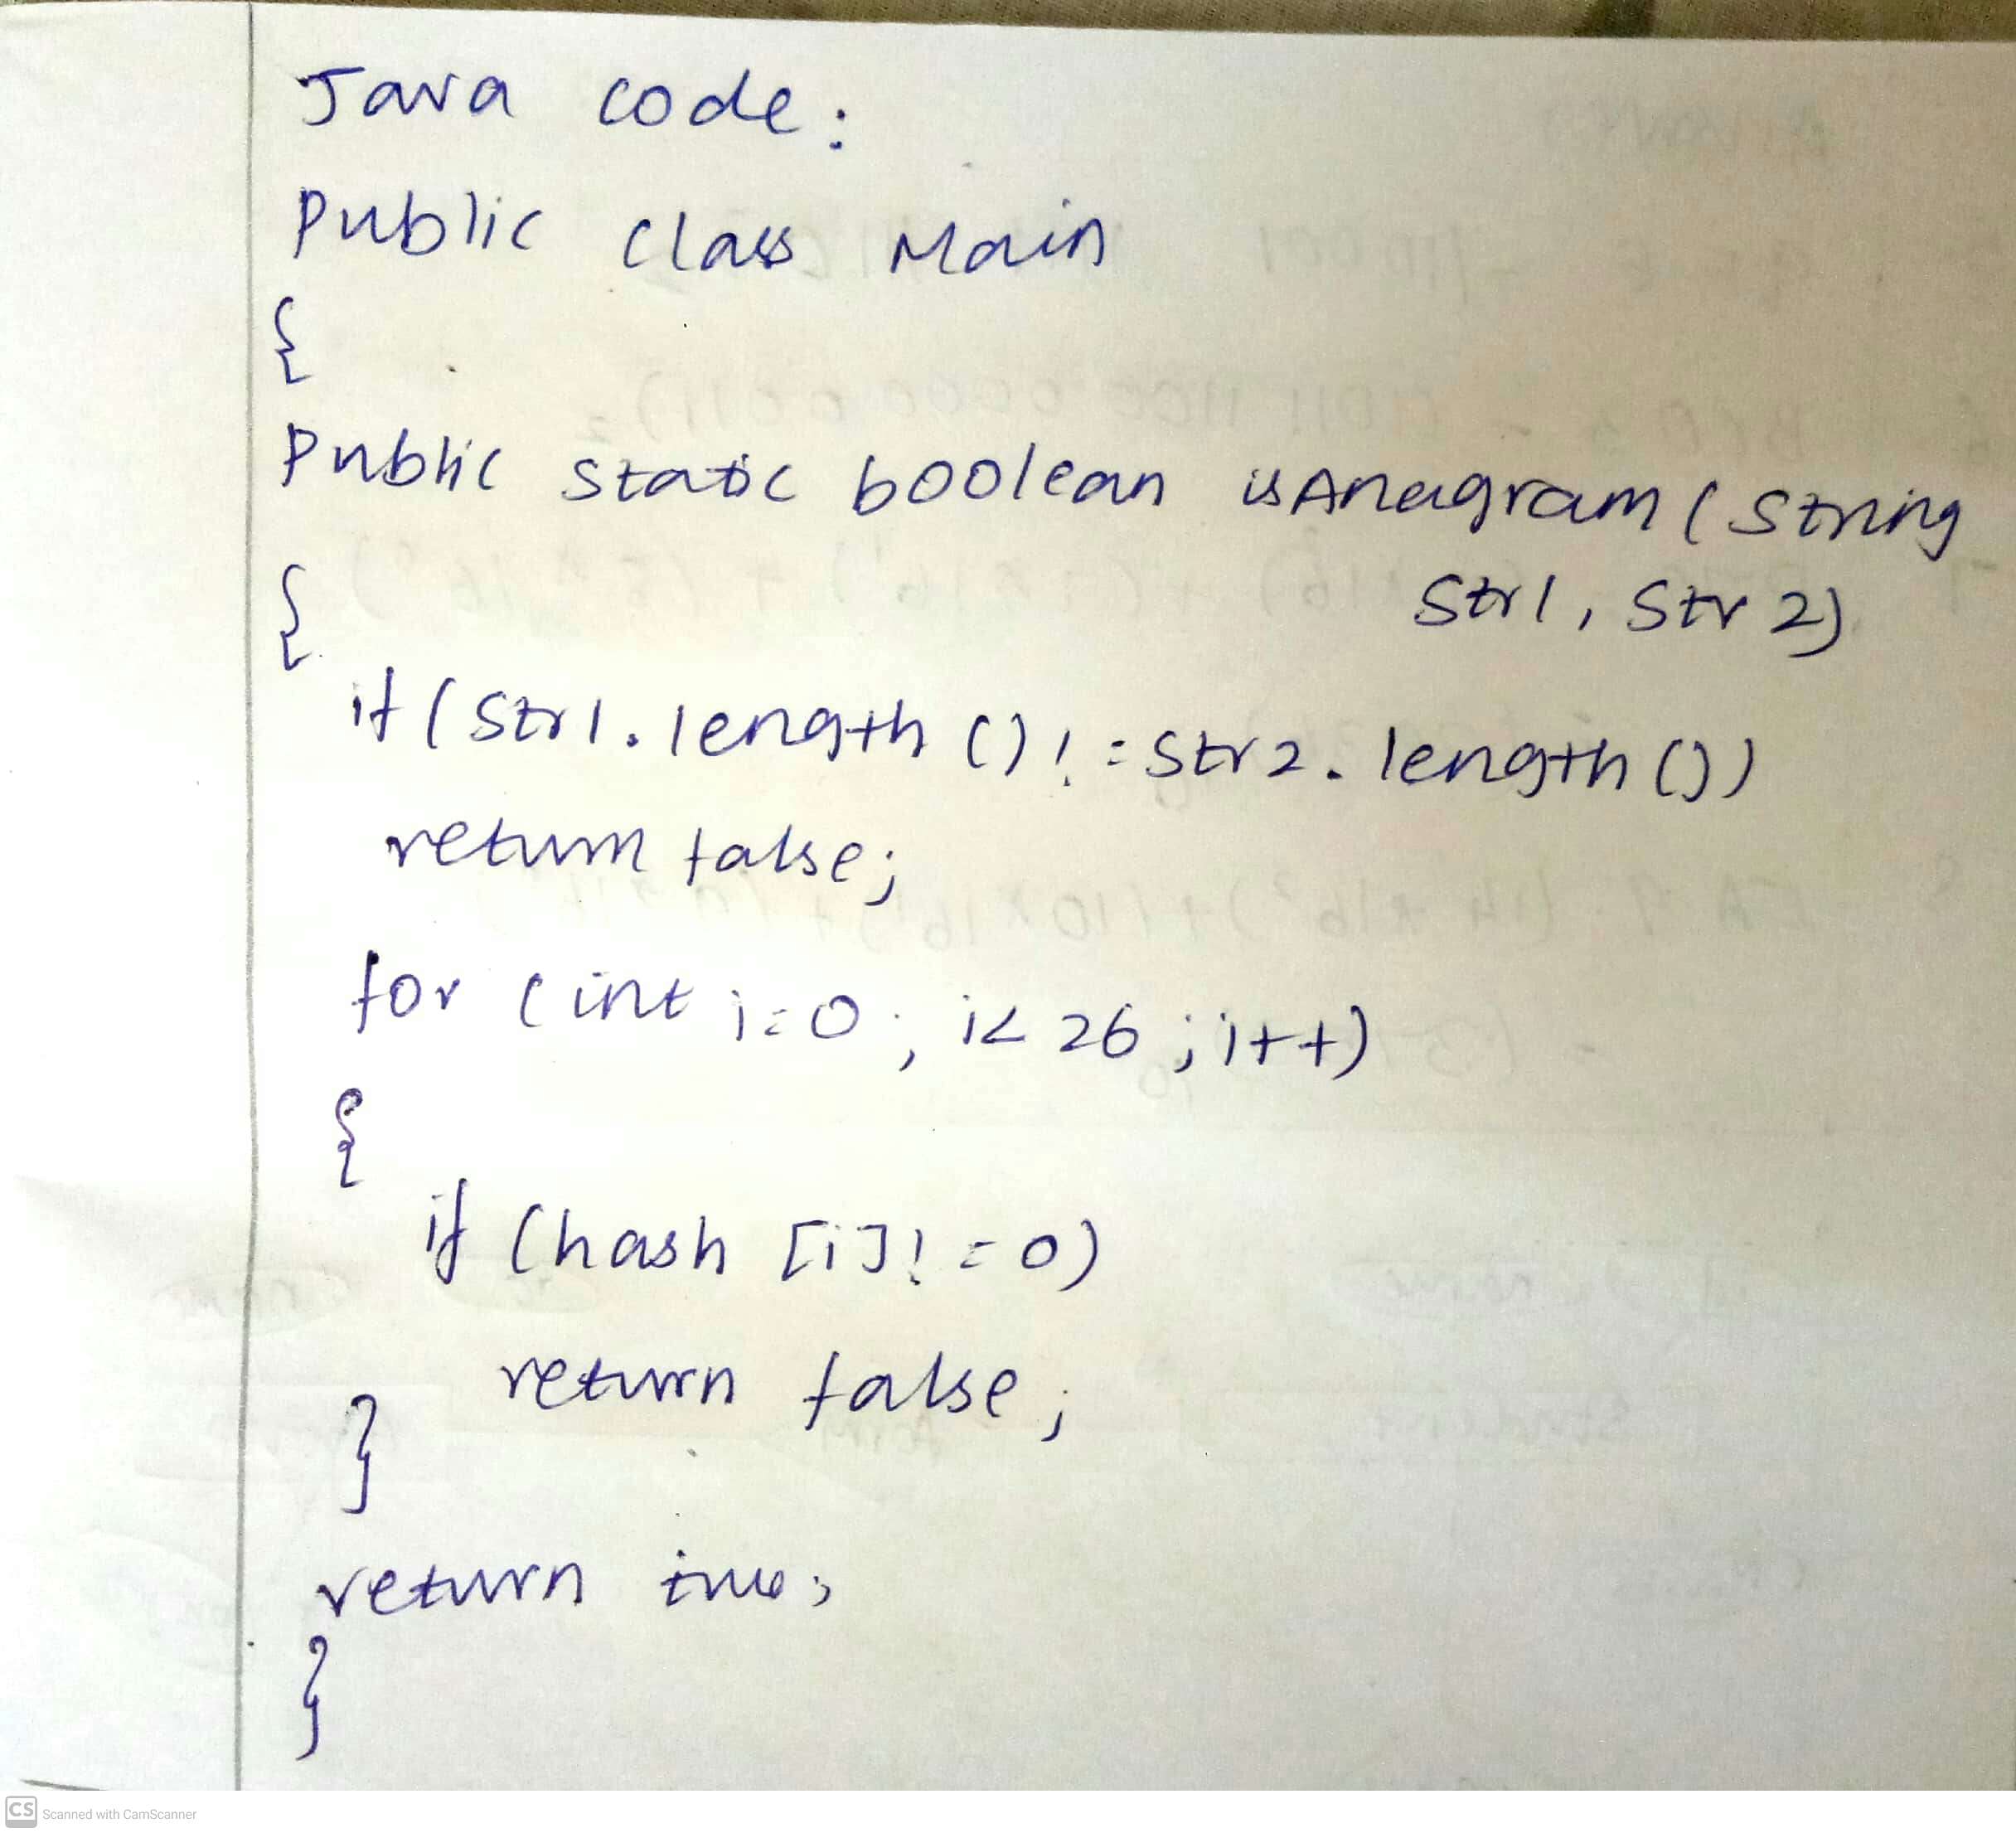 Java code:
Public class Main
{
Public static boolean isAnagram (String
str1, str2)
{
if (str1.length () != str2.length ())
return false;
for (int i=0; i<26; i++)
{
if (hash [i] != 0)
return false;
}
return true;
}
CS Scanned with CamScanner